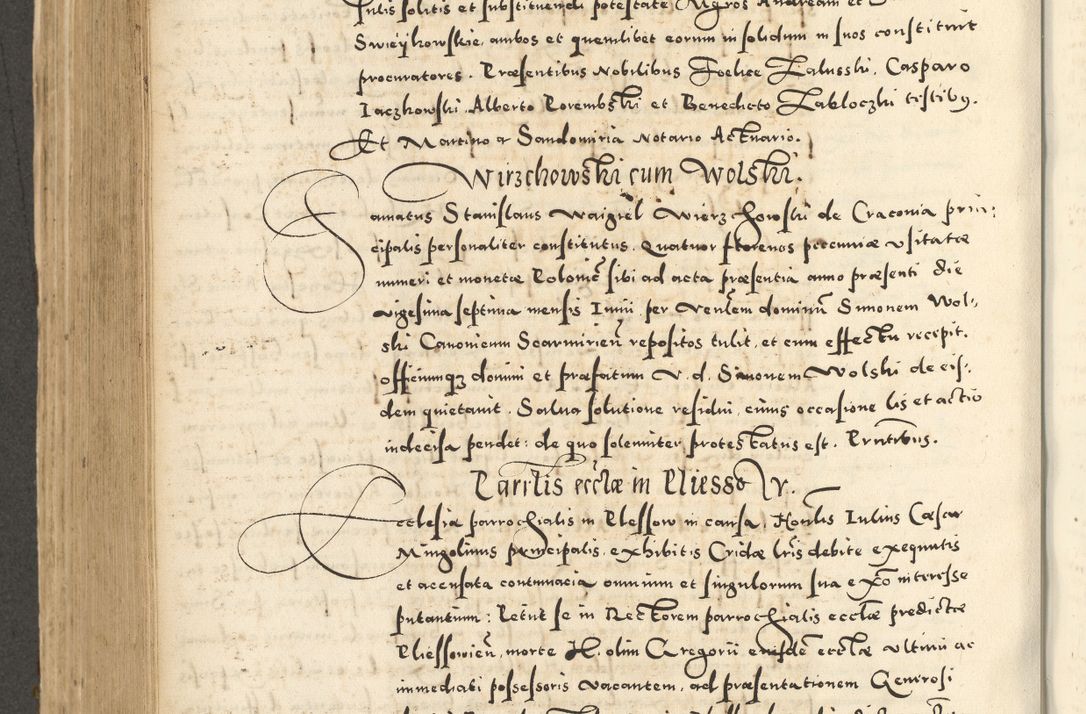 Iulis solitis et substituendi potestate Mgros Andream et
Swieÿkowskie, ambos et quemlibet eorum in solidum in suos constituit
procuratores. Præsentibus Nobilibus Foelice Zalusski, Casparo
Iaczkowski, Alberto Porembski et Benedicto Zabloczki testibus.
Et Martino a Sandomiria Notario Actuario.
Wirzchowski cum Wolski.
Famatus Stanislaus Waigiel Wierzchowski de Craconia prin:
cipalis personaliter constitutus. Quatuor florenos pecuniæ usitatæ
numeri et monetæ Polonic̃ sibi ad acta præsentia anno præsenti die
vigesima septima mensis Iunii per Venlem dominũ Simonem Wol:
ski Canonicum Scarmirien̄ repositos tulit, et cum effectu recepit.
officiumqz domini et præfatum V. d. Simonem Wolski de eis:
dem quietavit. Salva solutione residui, cuius occasione lis et actio
indecisa pendet: de quo solemniter protestatus est. Pñtibus.
Parrlis ecclæ in Pliessow.
Ecclesia parrochialis in Plessow in causa, Honlis Iulius Cæsar
Mingolinus principalis, exhibitis Cridæ lris debite exequutis
et accusata contumacia omnium et singulorum sua exõ interesse
putantium: Petiit se in Rectorem parrochialis ecclæ predictæ
Pliessovien̄, morte H. olim Gregorii eiusdẽ ecclæ ultimi ac
immediati possessoris vacantem, ad præsentationem Generosi